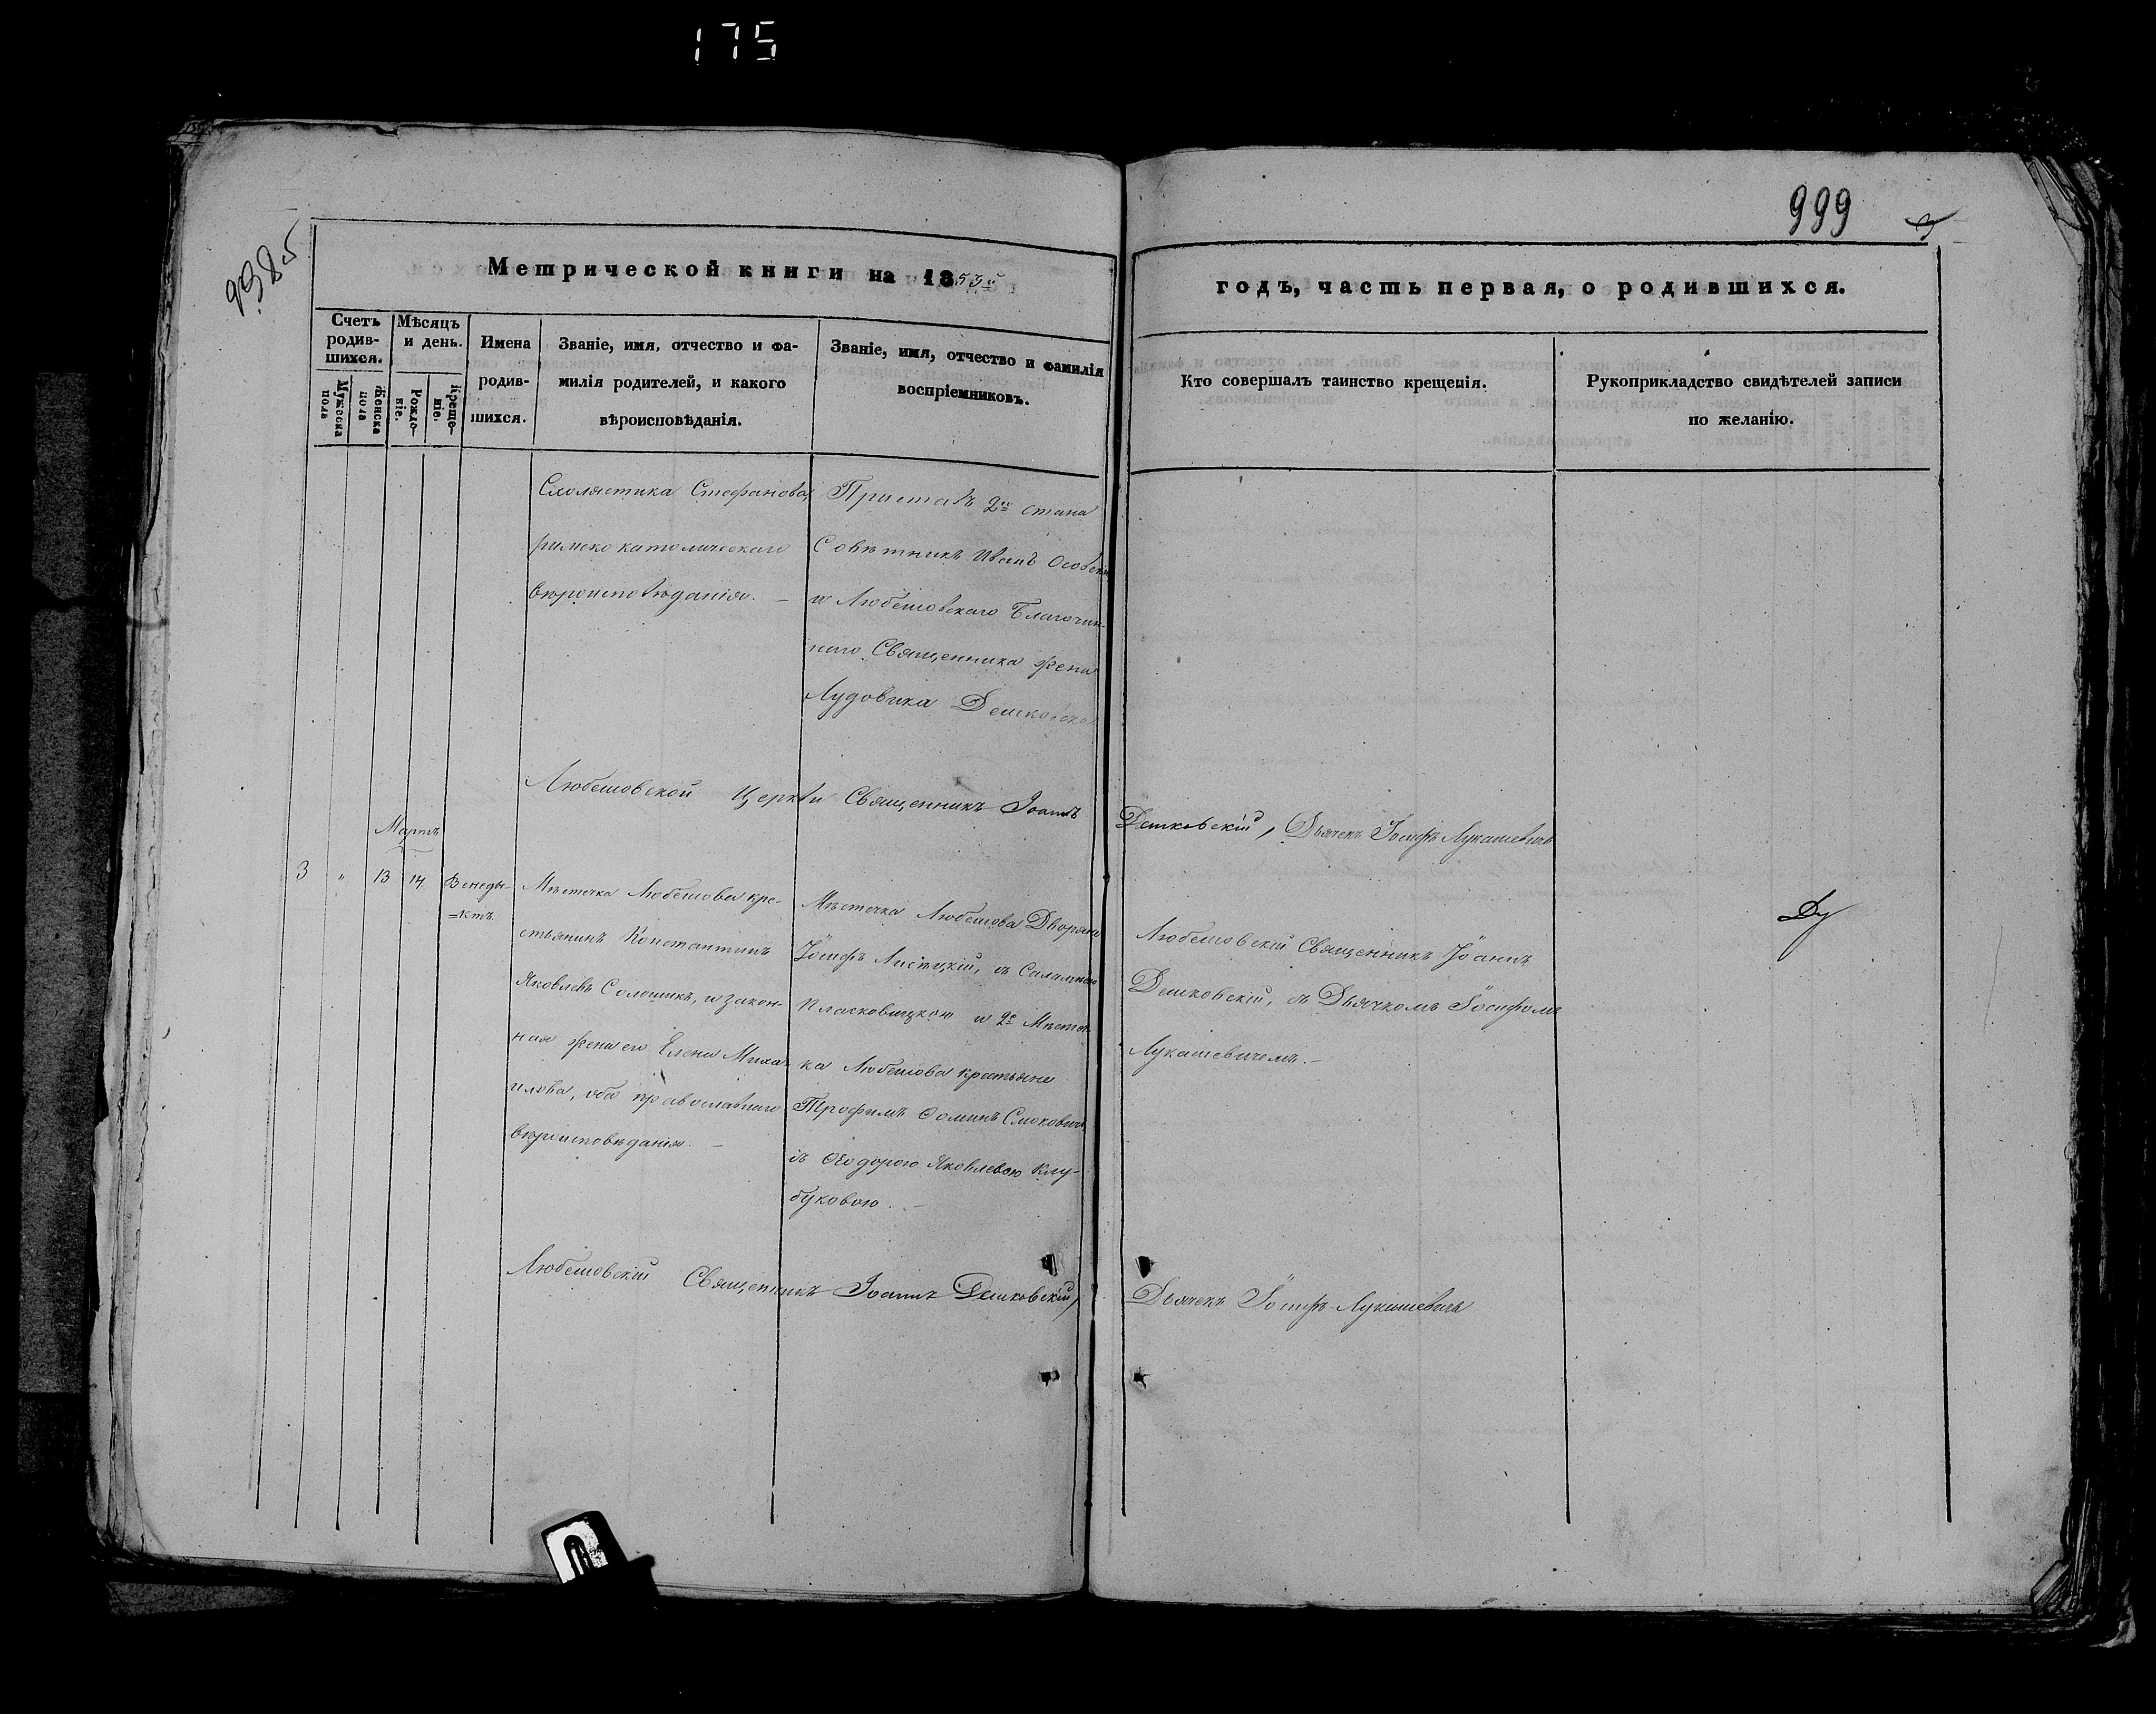 175
999
9385
Метрической книги на 1853й
годъ, часть первая, о родившихся.
Счетъ родив-шихся.
Мужеска пола
Женска пола
Мѣсяцъ и день.
Рожде-ніе.
Креще-ніе.
Имена родив-шихся.
Званіе, имя, отчество и фа-
милія родителей, и какого
вѣроисповѣданія.
Званіе, имя, отчество и фамилія
воспріемниковъ.
Кто совершалъ таинство крещенія.
Рукоприкладство свидѣтелей записи
по желанію.
Схолястика Стефанова,
римско католическаго
вѣроисповѣданія. —
Приставъ 2го стана
Совѣтникъ Иванъ Осовскій
и Любешовскаго Благочин-
наго Священника жена
Лудовика Демковска
Любешовской Церкви Священникъ Іоаннъ
Демковскій, Дьячекъ Іосифъ Лукашевичъ
Мартъ
3 " 13 14
Венеды-
=ктъ.
Мѣстечка Любешова кре-
стьянинъ Константинъ
Яковлевъ Солошикъ, и закон-
ная жена его Елена Миха-
илова, оба православнаго
вѣроисповѣданія. —
Мѣстечка Любешова Дворяне
Іосифъ Листцкій, съ
и 2е Мѣстеч-
ка Любешова крестьяне
Трофимъ Ѳоминъ
съ Ѳеодорою Яковлевою Клу-
буковою. —
Любешовскій Священникъ Іоаннъ
Демковскій, съ Дьячкомъ Іосифомъ
Лукашевичемъ. —
Любешовскій Священникъ Іоаннъ Демковскій,
Дьячекъ Іосифъ Лукашевичъ